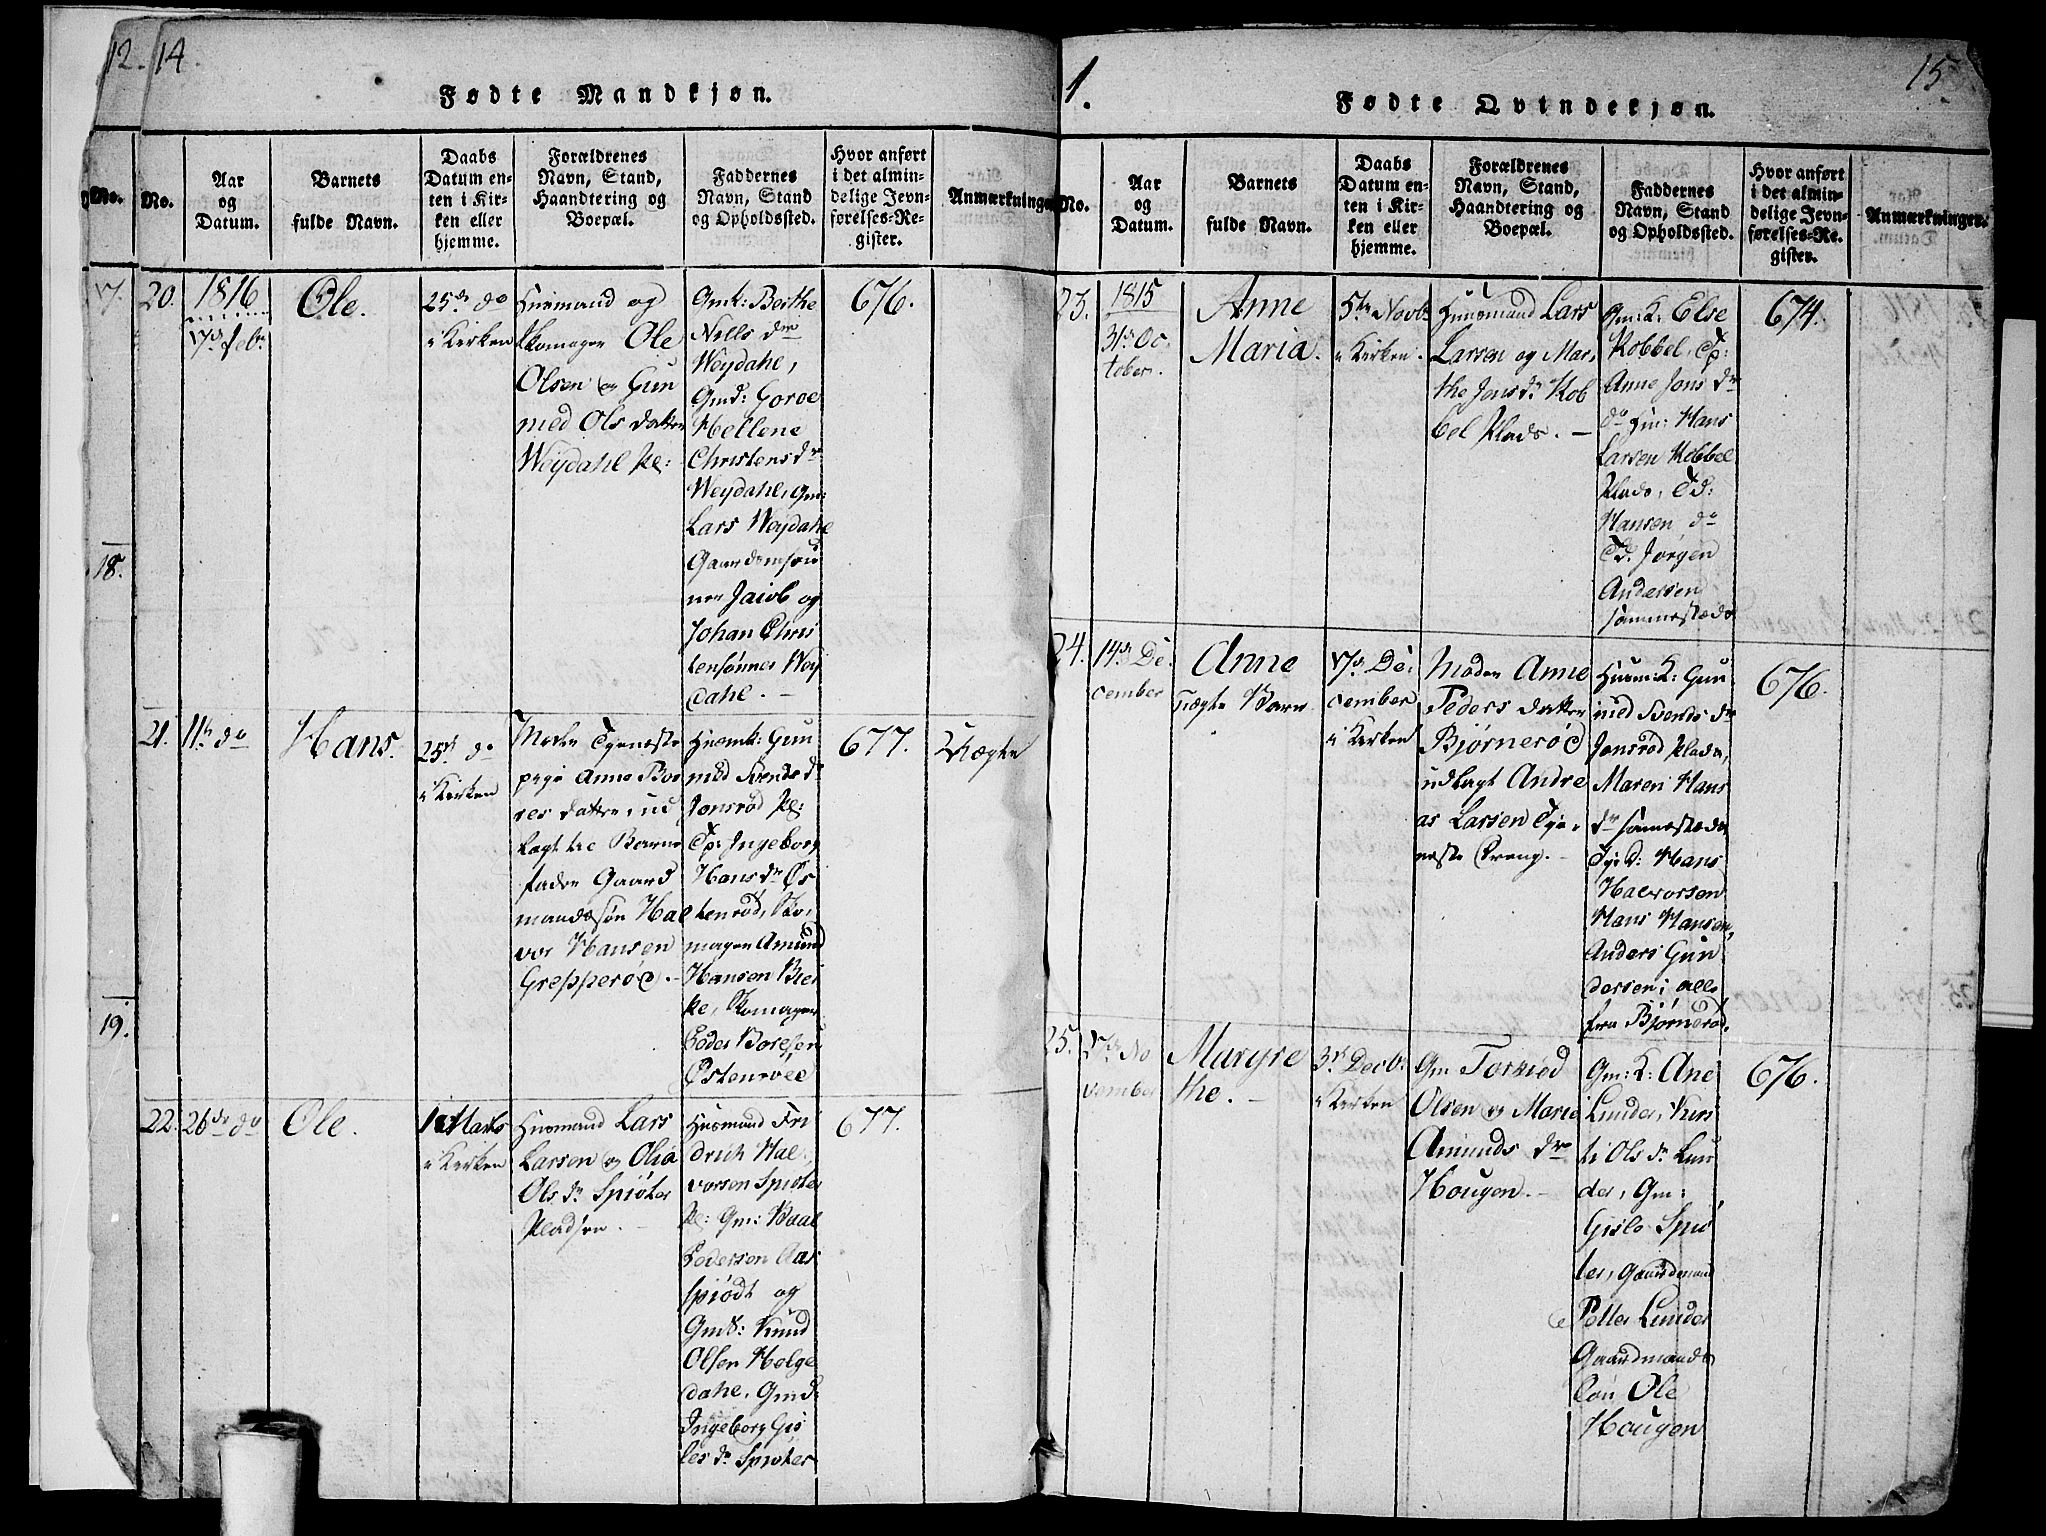 12. 14.
Fødte Mandkjøn.
No.
No.
Aar
og
Datum.
Barnets
fulde Navn.
Daabs
Datum en-
ten i Kir-
ken eller
hjemme.
Forældrenes
Navn, Stand,
Haandtering og
Boepæl.
Faddernes
Navn, Stand
og Opholdssted.
Hvor anført
i det almin-
delige Jevn-
førelses-Re-
gister.
Anmærkninger
17.
18.
19.
20.
1816
17de Febr
Ole.
25de do
i Kirken
Huusmand og
Skomager Ole
Olsen og Gun
med Ols datter
Weydahl Pl:
Gmk: Berthe
Niels dr
Weydahl,
Gmd: Goroe
Hellene
Christens dr
Weydahl, Gm:
Lars Weydahl
Gaardmsøn
ner Jacob og
Johan Chris
tensønner Wey
dahl. –
676.
21.
11te do
Hans.
25de do
i Kirken
Moder Tjeneste
pige Anne Bor
res datter, ud
lagt til Barne
fader Gaard
mandssøn Hal
vor Hansen
Grepperød. –
Husmk: Gun
nild Svends dr
Jonsrød Pl:
Tp: Ingeborg
Hans dr Øs
tenrød, Sko,
mager Amund
Hansen Brei
ke, Skomager
Peder Boresen
Østenrøed
677.
Uægte
22.
26de do
Ole.
1 Marts
i Kirken
Husmand Lars
Larsen og Olia
Ols dr Spiøter
Pladsen. –
Husmand Fri
drich Hal,
vorsen Spiøter
Pl: Gm: Paal
Pedersen Aas
Spiødt og
Gmd: Knud
Olsen Helge
dahl, Gmd:
Ingeborg Gis
les dr Spiøter
677.
1.
15.
Fødte Qvindekjøn.
No.
Aar
og
Datum.
Barnets
fulde Navn.
Daabs
Datum en-
ten i Kir-
ken eller
hjemme.
Forældrenes
Navn, Stand,
Haandtering og
Boepæl.
Faddernes
Navn, Stand
og Opholdssted.
Hvor anført
i det almin-
delige Jevn-
førelses-Re-
gister.
Anmærkninger.
23.
1815
31de Oc
tober.
Anne
Maria.
5te Novb:
i Kirken.
Huusmand Lars
Larsen og Mar,
the Jens dr Kob
bel Plads. –
Gm: K: Else
Kobbel, Tp:
Anne Jons dr
do Hm: Hans
Larsen Kobbel
Plads, Td:
Hansen do
Td: Jørgen
Andersen
sammesteds
674.
24.
14de De
cember
Anne
Uægte Barn
17de De,
cember
i Kirken
Moder Anne
Peders datter
Bjørnerød
udlagt Andre
as Larsen Tje,
neste Dreng. –
Husm: K: Gun
nild Svends dr
Jonsrød Plads,
Maren Hans
dr samesteds
Tje: d: Hans
Halvorsen
Hans Hansen,
Anders Gun
dersen; alle
fra Bjørnerød.
676.
25.
27de No
vember
Margre
the. –
3de Decb:
i Kirken
Gm Torkiød
Olsen og Maria
Amunds dr
Hougen. –
Gm: K: Ane
Lunder, Kirs
ti Ols dr Lun
der, Gm:
Gisle Spiø
ter, Gaardmand
Peller Lunder
Gaardmands
søn Ole
Hougen
676.